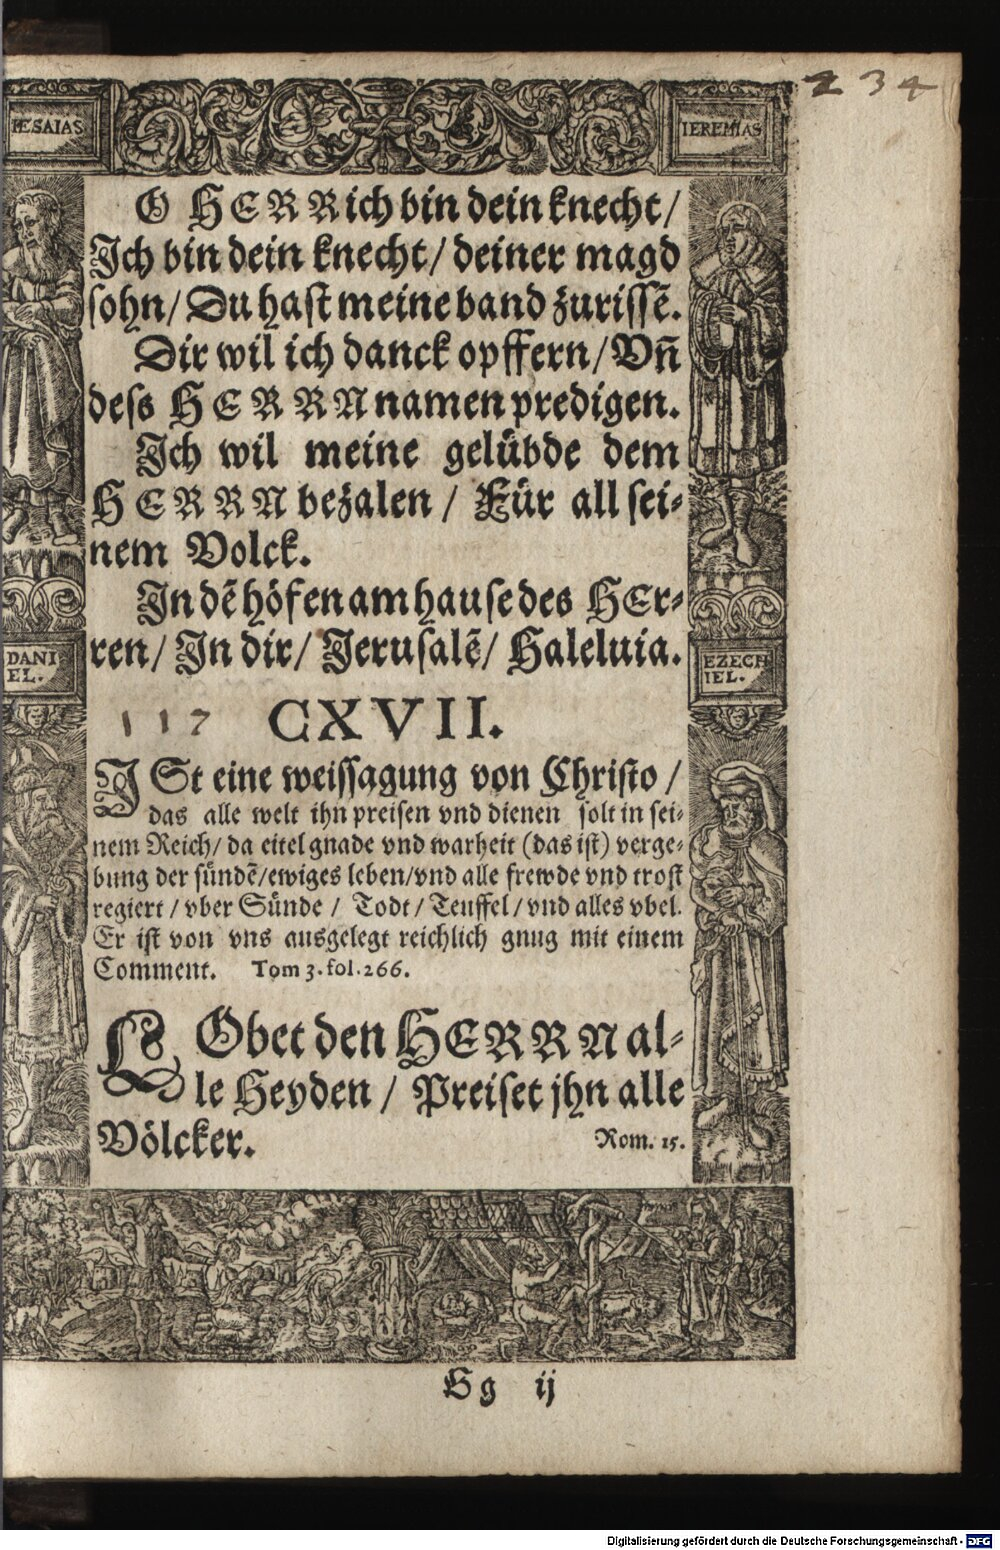 234
IESAIAS
IEREMIAS
O HERR ich bin dein knecht /
Ich bin dein knecht / deiner magd
sohn / Du hast meine band zurissē.
Dir wil ich danck opffern / Vñ
dess HERRN namen predigen.
Ich wil meine gelübde dem
HERRN bezalen / Für all sei-
nem Volck.
In dē höfen am hause des HEr-
ren / In dir / Jerusalē / Haleluia.
DANI
EL.
EZECH
IEL.
117 CXVII.
ISt eine weissagung von Christo /
das alle welt ihn preisen vnd dienen solt in sei-
nem Reich / da eitel gnade vnd warheit (das ist) verge-
bung der sündē / ewiges leben / vnd alle frewde vnd trost
regiert / vber Sünde / Todt / Teuffel / vnd alles vbel.
Er ist von vns ausgelegt reichlich gnug mit einem
Comment. Tom 3. fol. 266.
LObet den HERRN al-
le Heyden / Preiset jhn alle
Völcker. Rom. 15.
Gg ij
Digitalisierung gefördert durch die Deutsche Forschungsgemeinschaft - DFG